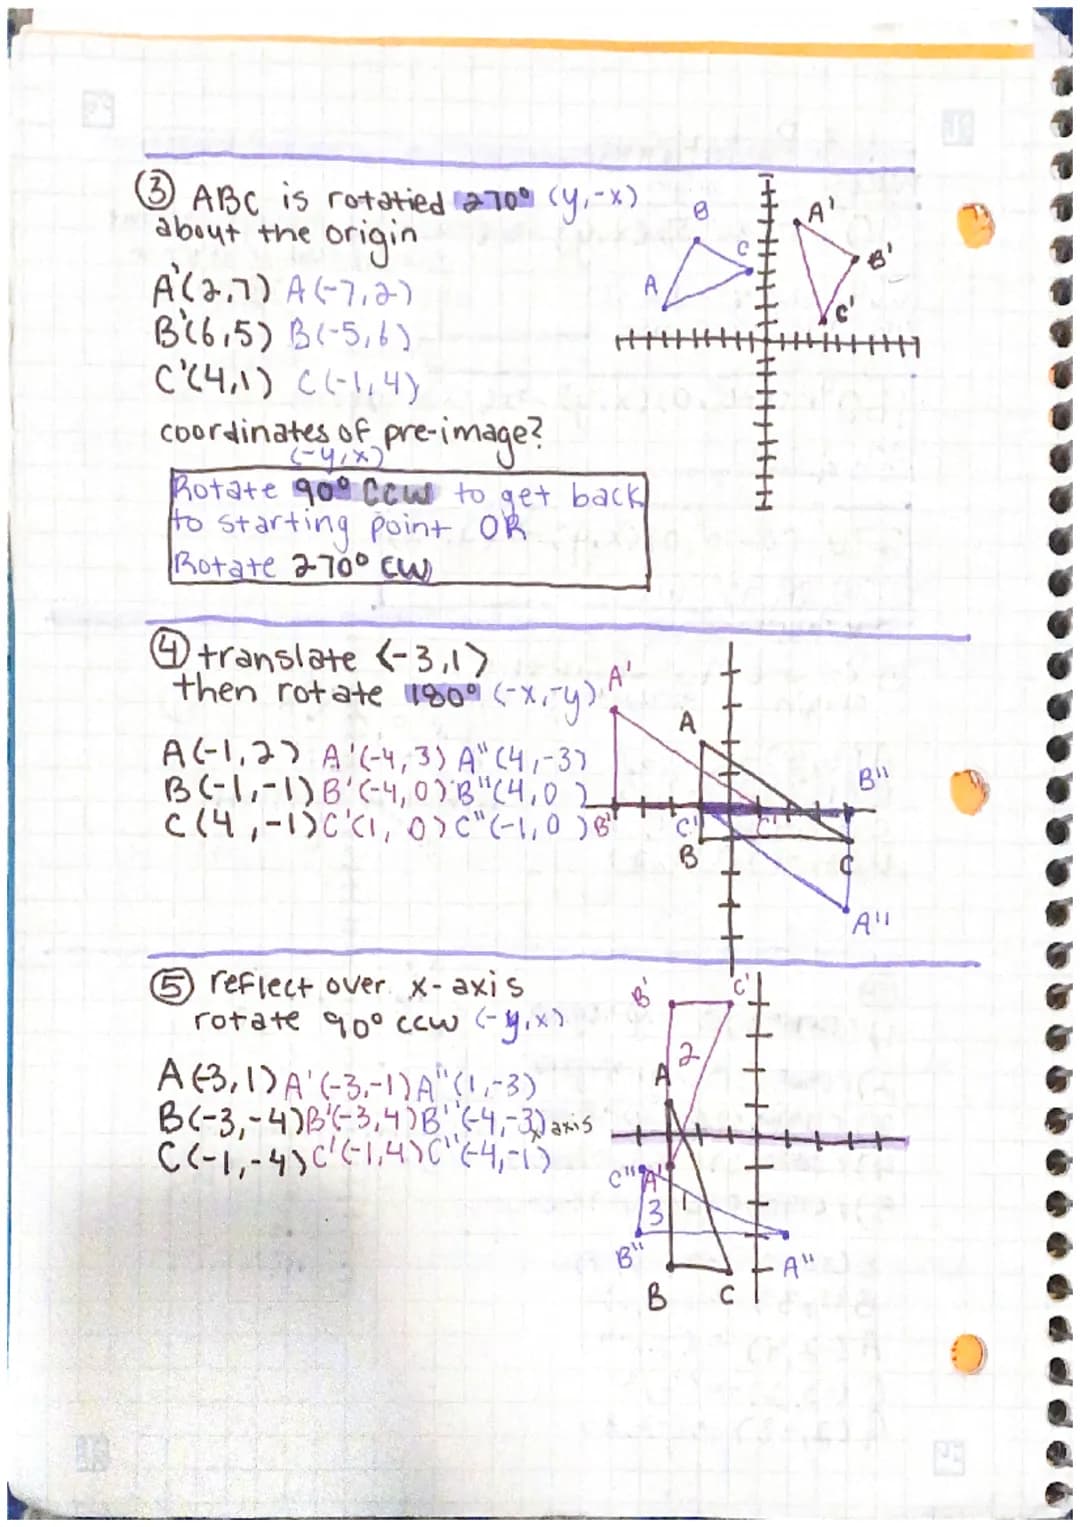 ③ ABC is rotatied 270° (y,-x)
about the origin
A'(2,7) A(-7,2)
B'(6,5) B(-5,6)
C'(4,1) C(-1,4)
coordinates of pre-image?
(-y,x)
Rotate 90° CCW to get back
to starting point OR
Rotate 270° CW
B
C
A
A'
B'
C'
④ translate <-3,1>
then rotate 180° (-x,-y)
A(-1,2) A'(-4,3) A"(4,-3)
B(-1,-1) B'(-4,0) B"(4,0)
C(4,-1) C'(1,0) C"(-1,0)
A'
A
B"
B'
C'
C'
B
C
A"
⑤ reflect over x-axis
rotate 90° ccw (-y,x)
A(-3,1) A'(-3,-1) A"(1,-3)
B(-3,-4) B'(-3,4) B"(-4,-3)
C(-1,-4) C'(-1,4) C"(-4,-1)
x axis
B'
C'
2
A
C"
A'
1
3
B"
A"
B
C